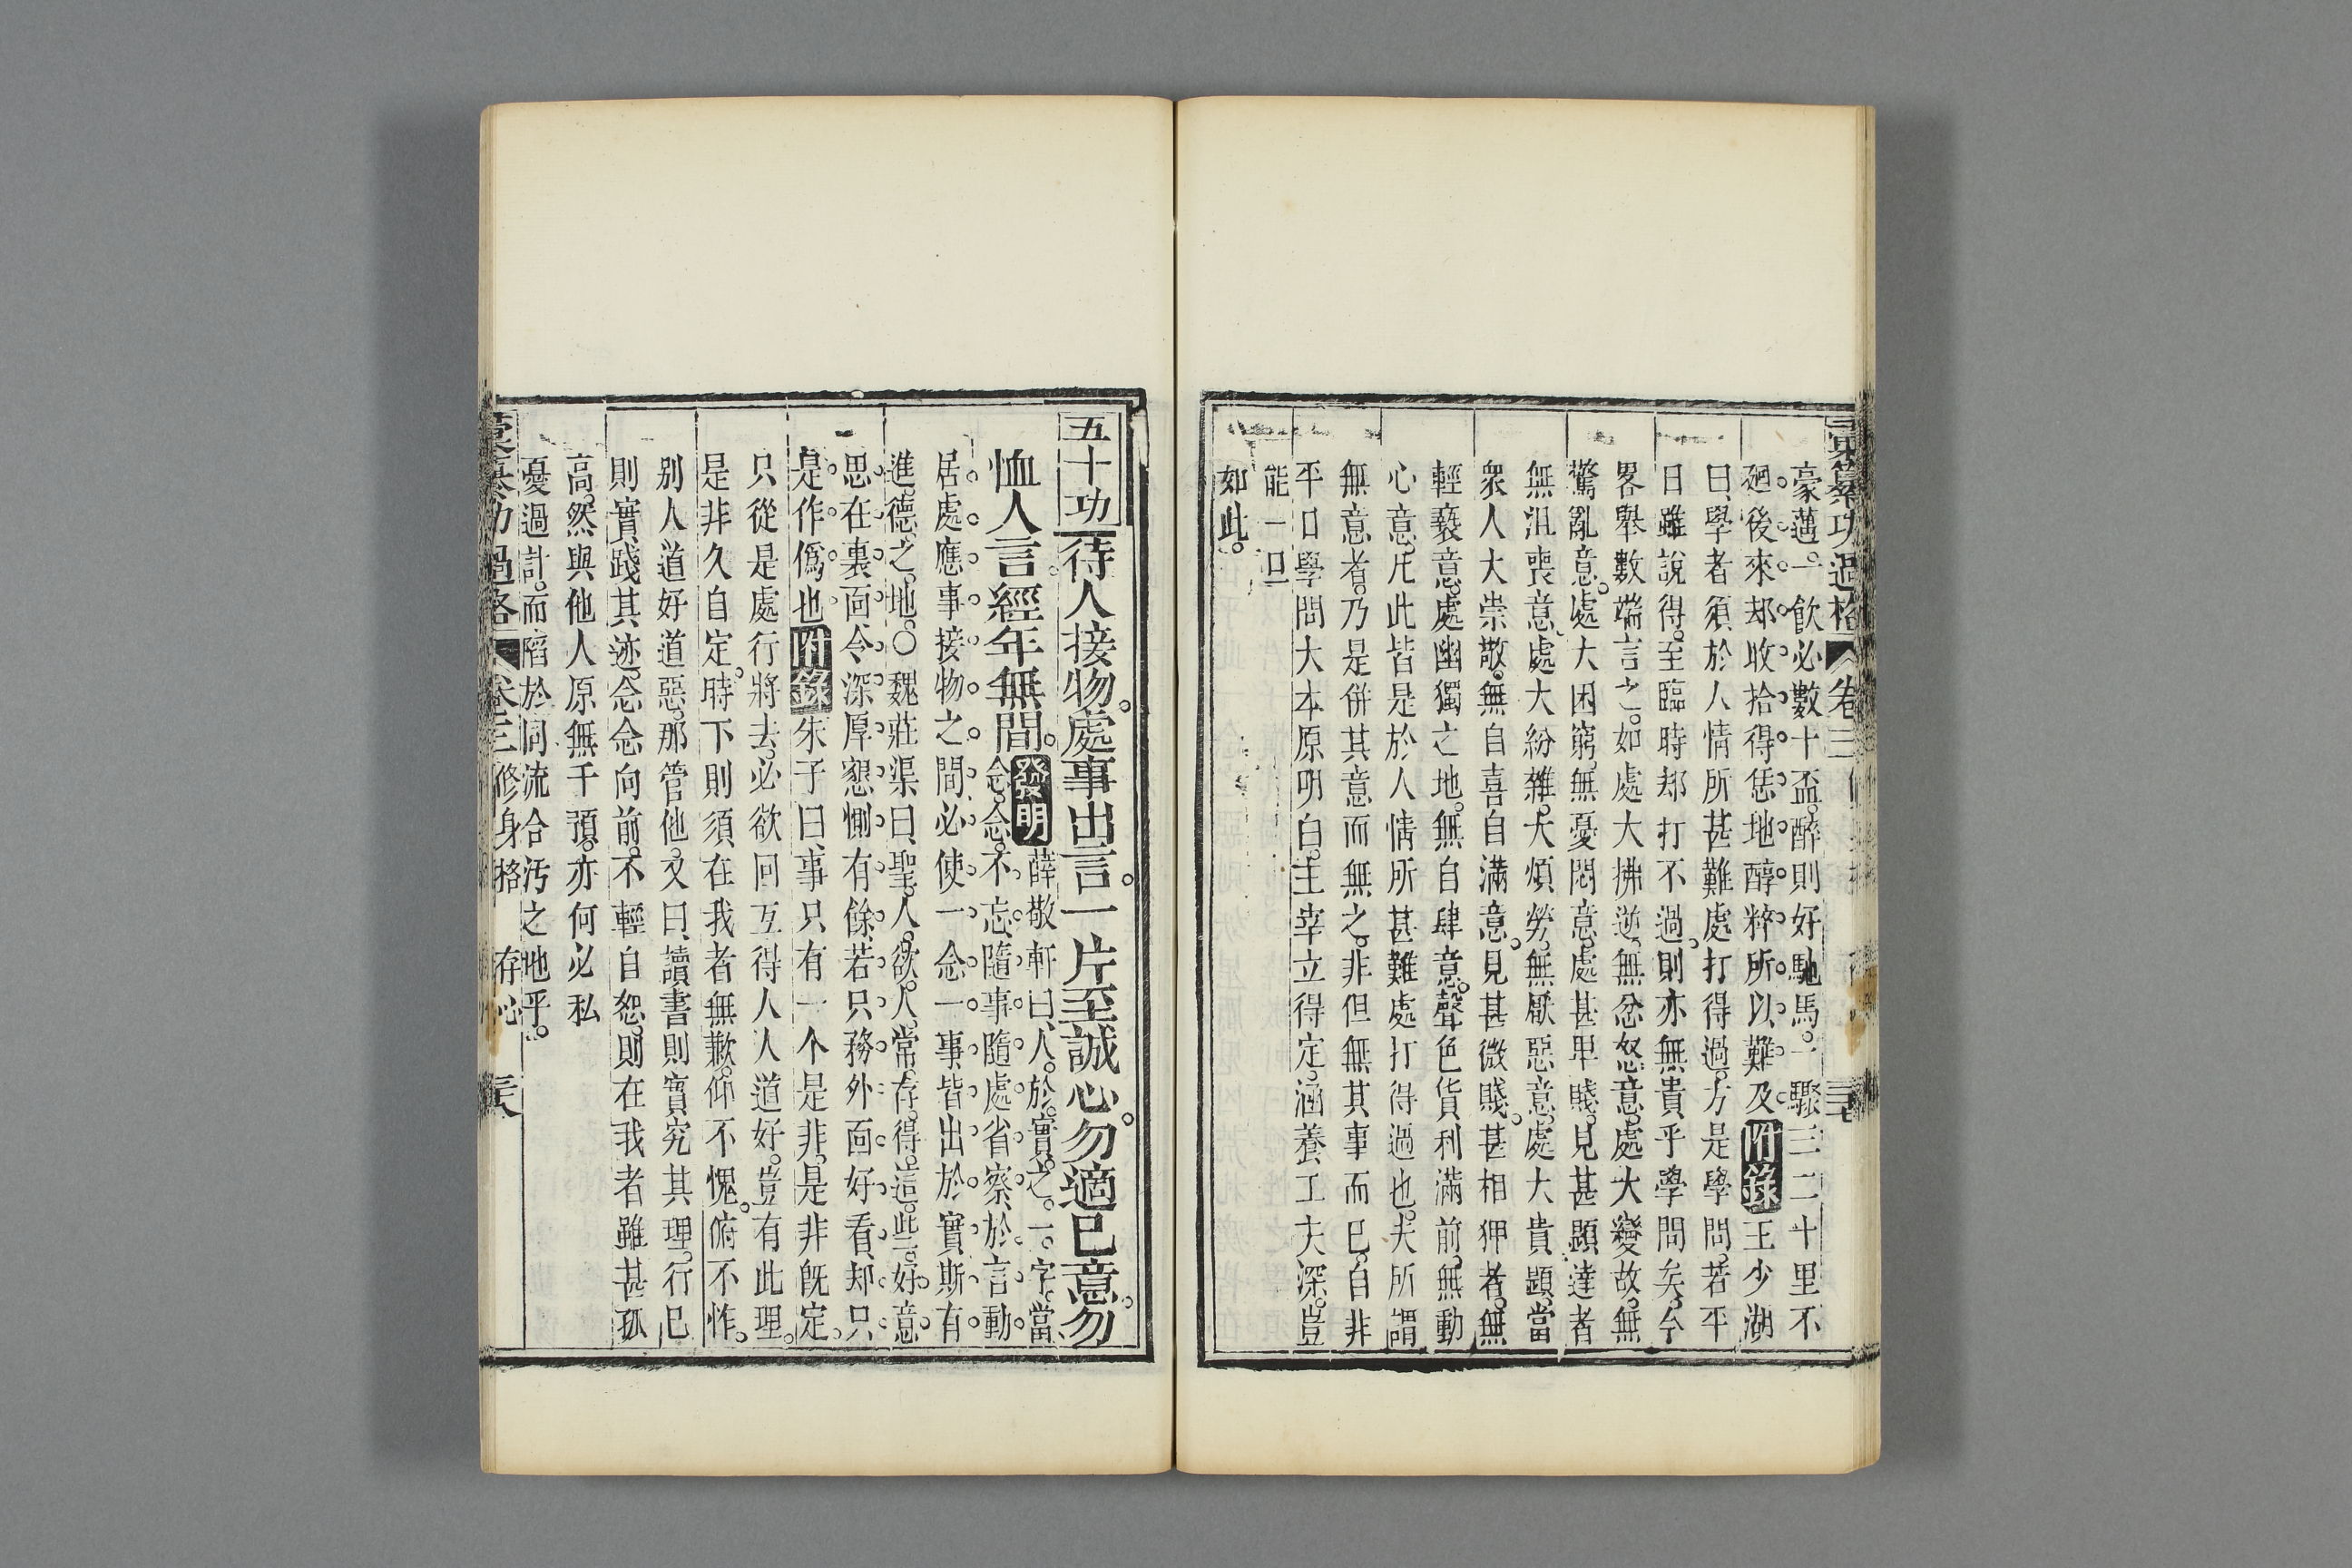 彙纂功過格 卷三
豪邁。一飲必數十盃。醉則好馳馬。一驟三二十里不
廻。後來却收拾得恁地醇粹。所以難及。附錄王少湖
曰、學者須於人情所甚難處打得過。方是學問。若平
日雖說得。至臨時却打不過。則亦無貴乎學問矣。今
畧舉數端言之。如處大拂逆。無忿怒意。處大變故。無
驚亂意。處大困窮。無憂悶意。處甚卑賤。見甚顯達者
無沮喪意。處大紛雜。大煩勞。無厭惡意。處大貴顯。當
衆人大崇敬。無自喜自滿意。見甚微賤。甚相狎者。無
輕褻意。處幽獨之地。無自肆意。聲色貨利滿前。無動
心意。凡此皆是於人情所甚難處打得過也。夫所謂
無意者。乃是併其意而無之。非但無其事而已。自非
平日學問大本原明白。主宰立得定。涵養工夫深。豈
能一旦
如此。
五十功 待人接物。處事出言。一片至誠心。勿適已意。勿
恤人言。經年無間。發明 薛敬軒曰、人於實之一字。當
念念不忘。隨事隨處省察。於言動
居處應事接物之間。必使一念一事皆出於實。斯有
進德之地。○魏莊渠曰、聖人欲人常存得這些好意
思在裏面。令深厚懇惻有餘。若只務外面好看。却只
是作僞也。附錄朱子曰、事只有一个是非。是非旣定。
只從是處行將去。必欲回互得人人道好。豈有此理。
是非久自定。時下則須在我者無歉。仰不愧。俯不怍。
别人道好道惡。那管他。又曰、讀書則實究其理。行已
則實踐其迹。念念向前。不輕自恕。則在我者雖甚孤
高。然與他人原無干預。亦何必私
憂過計。而陷於同流合汚之地乎。
彙纂功過格 卷三 修身格 存心 三六